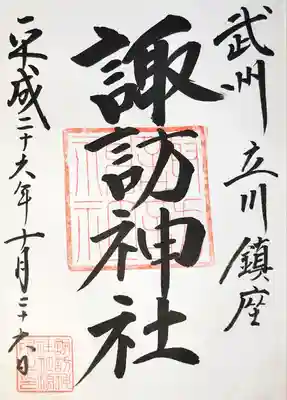 武州 立川鎮座
諏訪神社
平成二十六年十月二十六日